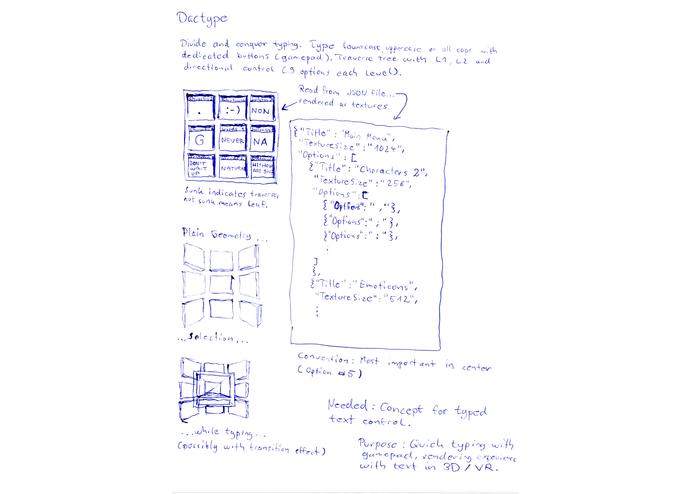 Dactype
Divide and conquer typing. Type lowercase, uppercase or all caps with
dedicated buttons (gamepad). Traverse tree with L1, L2 and
directional control (9 options each level).
Read from JSON file...
rendered as textures.
.
:-)
NON
G
NEVER
NA
DON'T
WAIT
UP
NATURAL
Sunk indicates traverse,
not sunk means leaf.
{"Title" : "Main Menu",
"TextureSize" : "1024",
"Options" : [
{"Title" : "Characters 2",
"TextureSize" : "256",
"Options" : [
{"Option" : ","},
{"Options" : ";"},
{"Options" : ":"},
⋮
]
},
{"Title" : "Emoticons",
"TextureSize" : "512",
⋮
Plain Geometry...
...selection...
...while typing...
(possibly with transition effect)
Convention: Most important in center
(Option #5)
Needed: Concept for typed
text control.
Purpose: Quick typing with
gamepad, rendering experience
with text in 3D / VR.